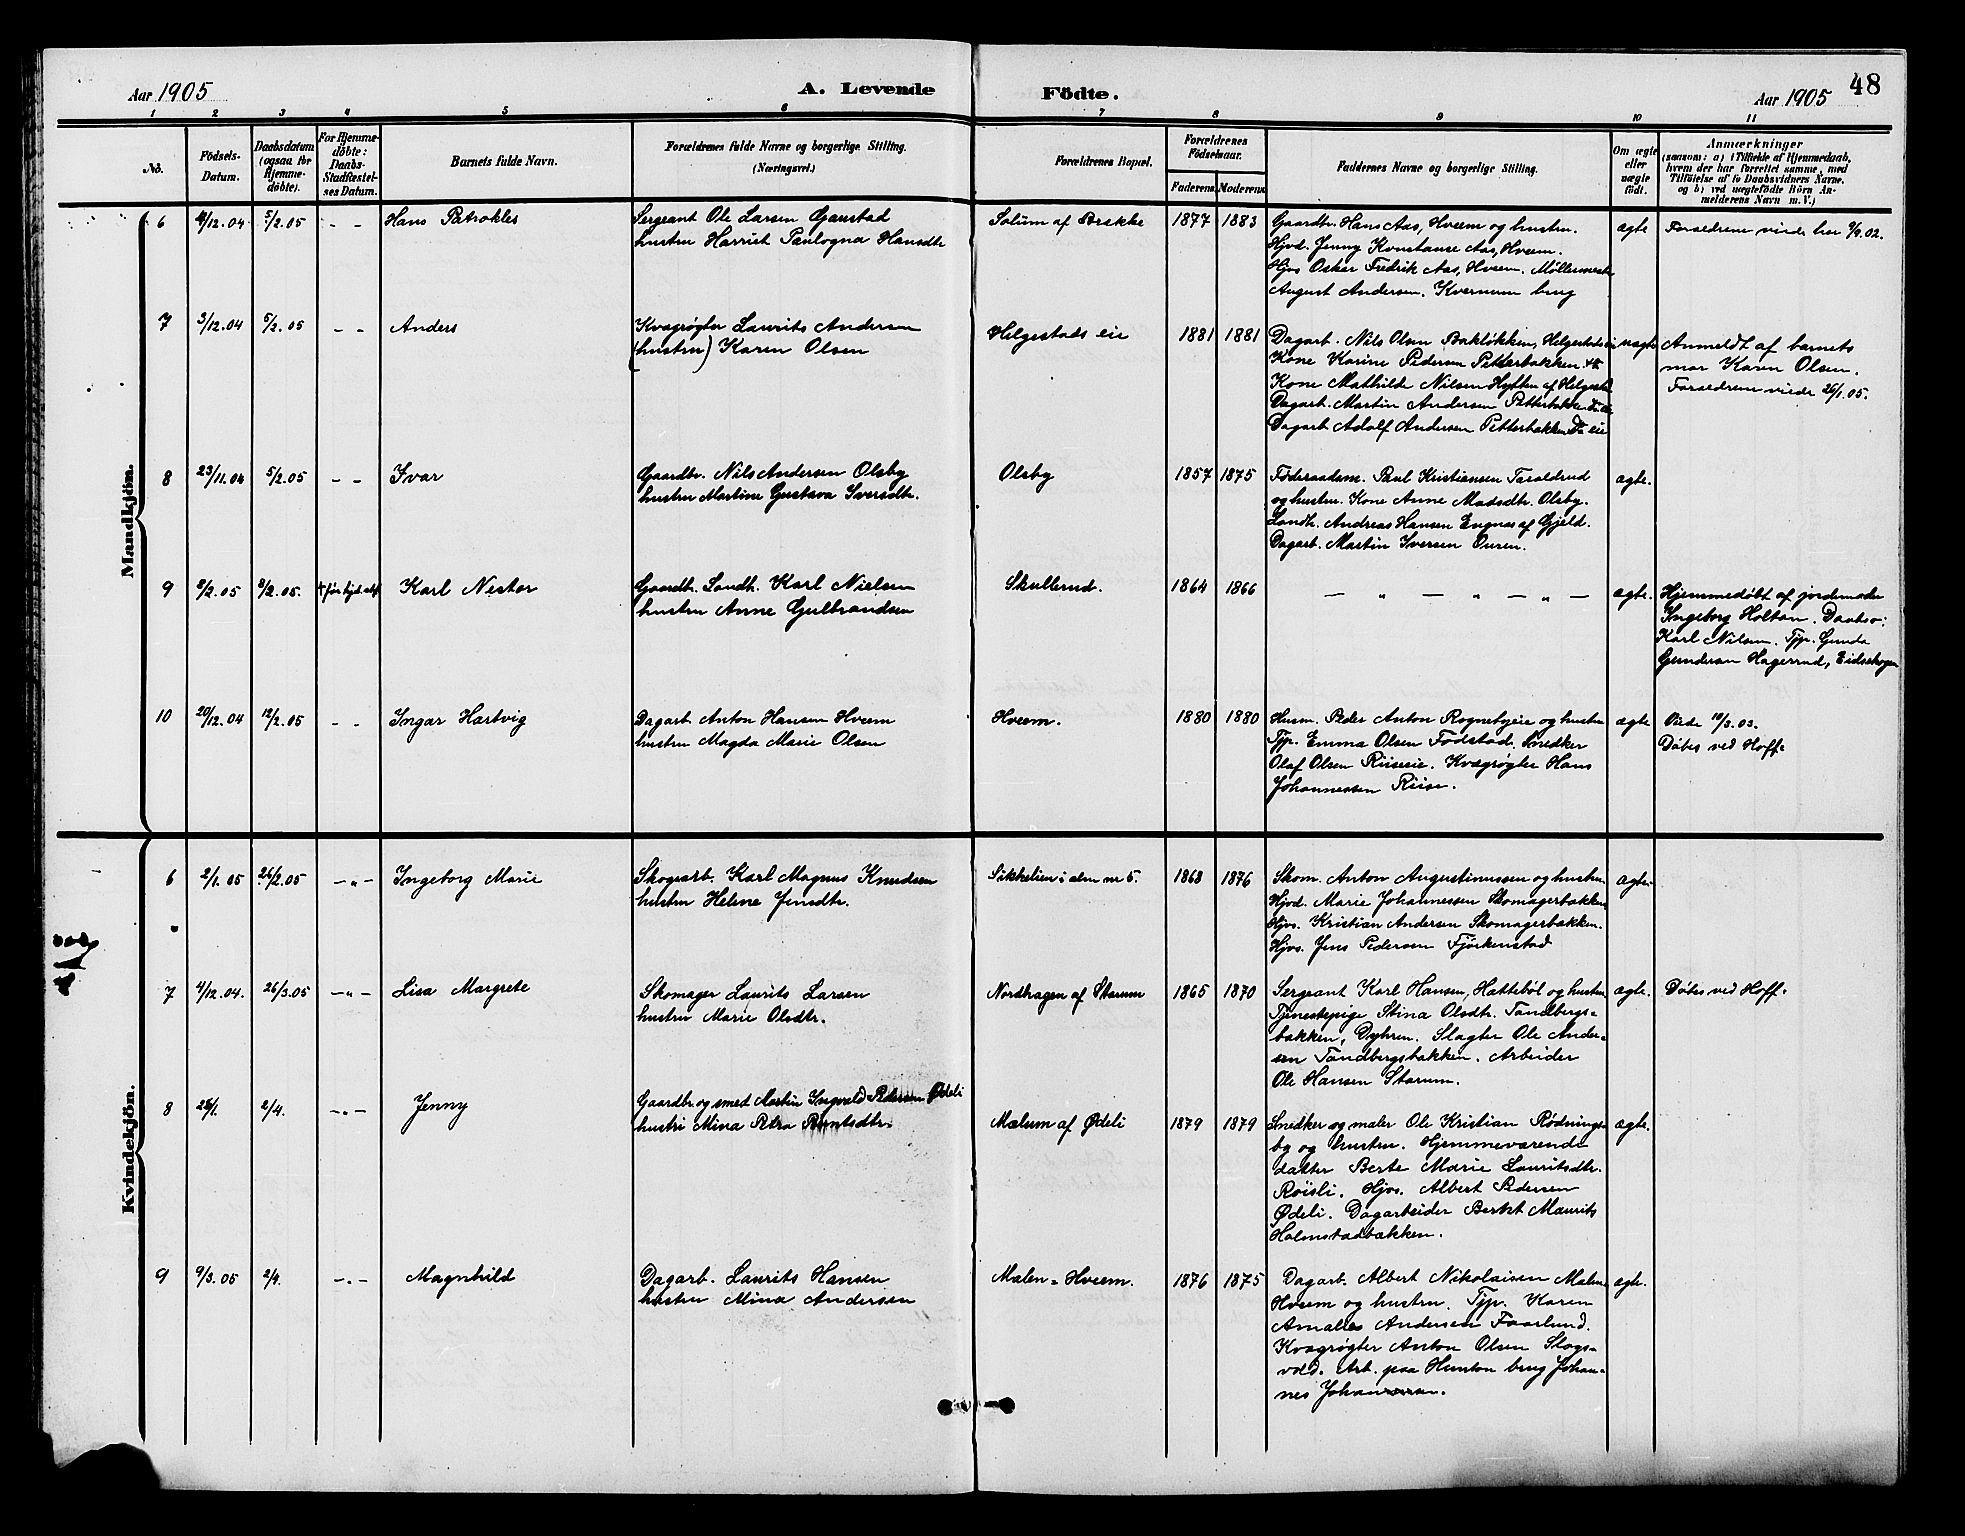 48
Aar 1905 A. Levende Födte. Aar 1905
1 2 3 4 5 6 7 8 9 10 11
No.
Födsels-
Datum.
Daabsdatum
(ogsaa for
Hjemme-
döbte).
For Hjemme-
döbte:
Daabs-
Stadfæstel-
ses Datum.
Barnets fulde Navn.
Forældrenes fulde Navne og borgerlige Stilling.
(Næringsvei.)
Forældrenes Bopæl.
Forældrenes
Födselsaar.
Faderens. Moderens.
Faddernes Navne og borgerlige Stilling.
Om ægte
eller
uægte
födt.
Anmærkninger
(saasom: a) i Tilfælde af Hjemmedaab,
hvem der har forrettet samme, med
Tilföielse af to Daabsvidners Navne,
og b) ved uægtefödte Börn An-
melderens Navn m. V.)
Mandkjön.
6 4/12.04 5/2.05 - - Hans Patrokles
Sergeant Ole Larsen Gaustad
hustru Harriet Paulogna Hansdtr
Solum af Brekke 1877 1883
Gaardbr. Hans Aas, Hveem og hustru.
Hjvd. Jenny Konstanse Aas, Hveem.
Hjvs Oskar Fredrik Aas, Hveem. Møllermester
August Andersen. Kvernum brug
ægte
Forældrene viede her 9/9.02.
7 3/12.04 5/2.05 - - Anders
Kvægrøgter Laurits Andersen
(hustru) Karen Olsen
Helgestads eie 1881 1881
Dagarb. Nils Olsen Bakløkken, Helgestads eie
Kone Karine Pedersen Petterbakken
Kone Mathilde Nilsen Hytten af Helgestad
Dagarb. Martin Andersen Petterbakken
Dagarb Adolf Andersen Petterbakken Fa eie
uægte
Anmeldt af barnets
mor Karen Olsen.
Forældrene viede 26/1.05.
8 23/11.04 5/2.05 - - Ivar
Gaardbr. Nils Andersen Olsby
hustru Martine Gustava Iversdtr.
Olsby 1857 1875
Föderaadsm. Paul Kristiansen Taraldrud
og hustru. Kone Anne Madsdtr. Olsby.
Landh. Andreas Hansen Engnæs af Gjeld.
Dagarb. Martin Iversen Duren.
ægte.
9 8/2.05 8/2.05. + før Karl Nestor
Gaardbr. Landh. Karl Nielsen
hustru Anne Gulbrandsen
Skullerud. 1864 1866
— „ — „ — „ —
ægte.
Hjemmedøbt af jordemoder
Ingeborg Holtan. Daabsv:
Karl Nilsen. Tjp. Gunda
Gundersen Hagerud, Eidsskogen
10 20/12.04 12/2.05 - - Ingar Hartvig
Dagarb. Anton Hansen Hveem
hustru Magda Marie Olsen
Hveem. 1880 1880
Husm. Peder Anton Rognebyeie og hustru
Tjp. Emma Olsen Fodstad. Snedker
Olaf Olsen Riiseeie. Kvægrøgter Hans
Johannessen Riise.
ægte
Viede 10/3.03.
Döbes ved Hoff.
Kvindekjön.
6 2/1.05 26/2.05 — „ — Ingeborg Marie
Skogsarb. Karl Magnus Knudsen
hustru Helene Jensdtr.
Sikkelien i alm nr 5. 1868 1876
Skom. Anton Augustinussen og hustru.
Hjvd. Marie Johannessen Skomagerbakken
Hjvs. Kristian Andersen Skomagerbakken.
Hjvs. Jens Pedersen Fjörkenstad
ægte.
7 4/12.04. 26/3.05 — „ — Lisa Margrete
Skomager Laurits Larsen
hustru Marie Olsdtr.
Nordhagen af Starum 1865 1870
Sergeant Karl Hansen, Hattebøl og hustru
Tjenestepige Stina Olsdtr. Tandbergs-
bakken, Dyhren. Slagter Ole Ander-
sen Tandbergsbakken. Arbeider
Ole Hansen Starum.
ægte.
Döbes ved Hoff.
8 26/1. 2/4. — „ — Jenny
Gaardbr. og smed Martin Ingvald Pedersen Ødeli
hustru Mina Petra Berntsdtr.
Mælum af Ødeli 1879 1879
Snedker og maler Ole Kristian Rødnings-
by og hustru. Hjemmeværende
datter Berte Marie Lauritsdtr.
Røisli. Hjvs. Albert Pedersen
Ødeli. Dagarbeider Bernt Maurits
Holmstadbakken.
ægte.
9 9/3.05 2/4. — „ — Magnhild
Dagarb. Laurits Hansen
hustru Mina Andersen
Malen - Hveem. 1876 1875
Dagarb. Albert Nikolaisen Malen
Hveem og hustru. Tjp. Karen
Amalie Andersen Faarlund.
Kvægrøgter Anton Olsen Slags-
vold. Arb. paa Hunton brug Johan-
nes Johannesen.
ægte.